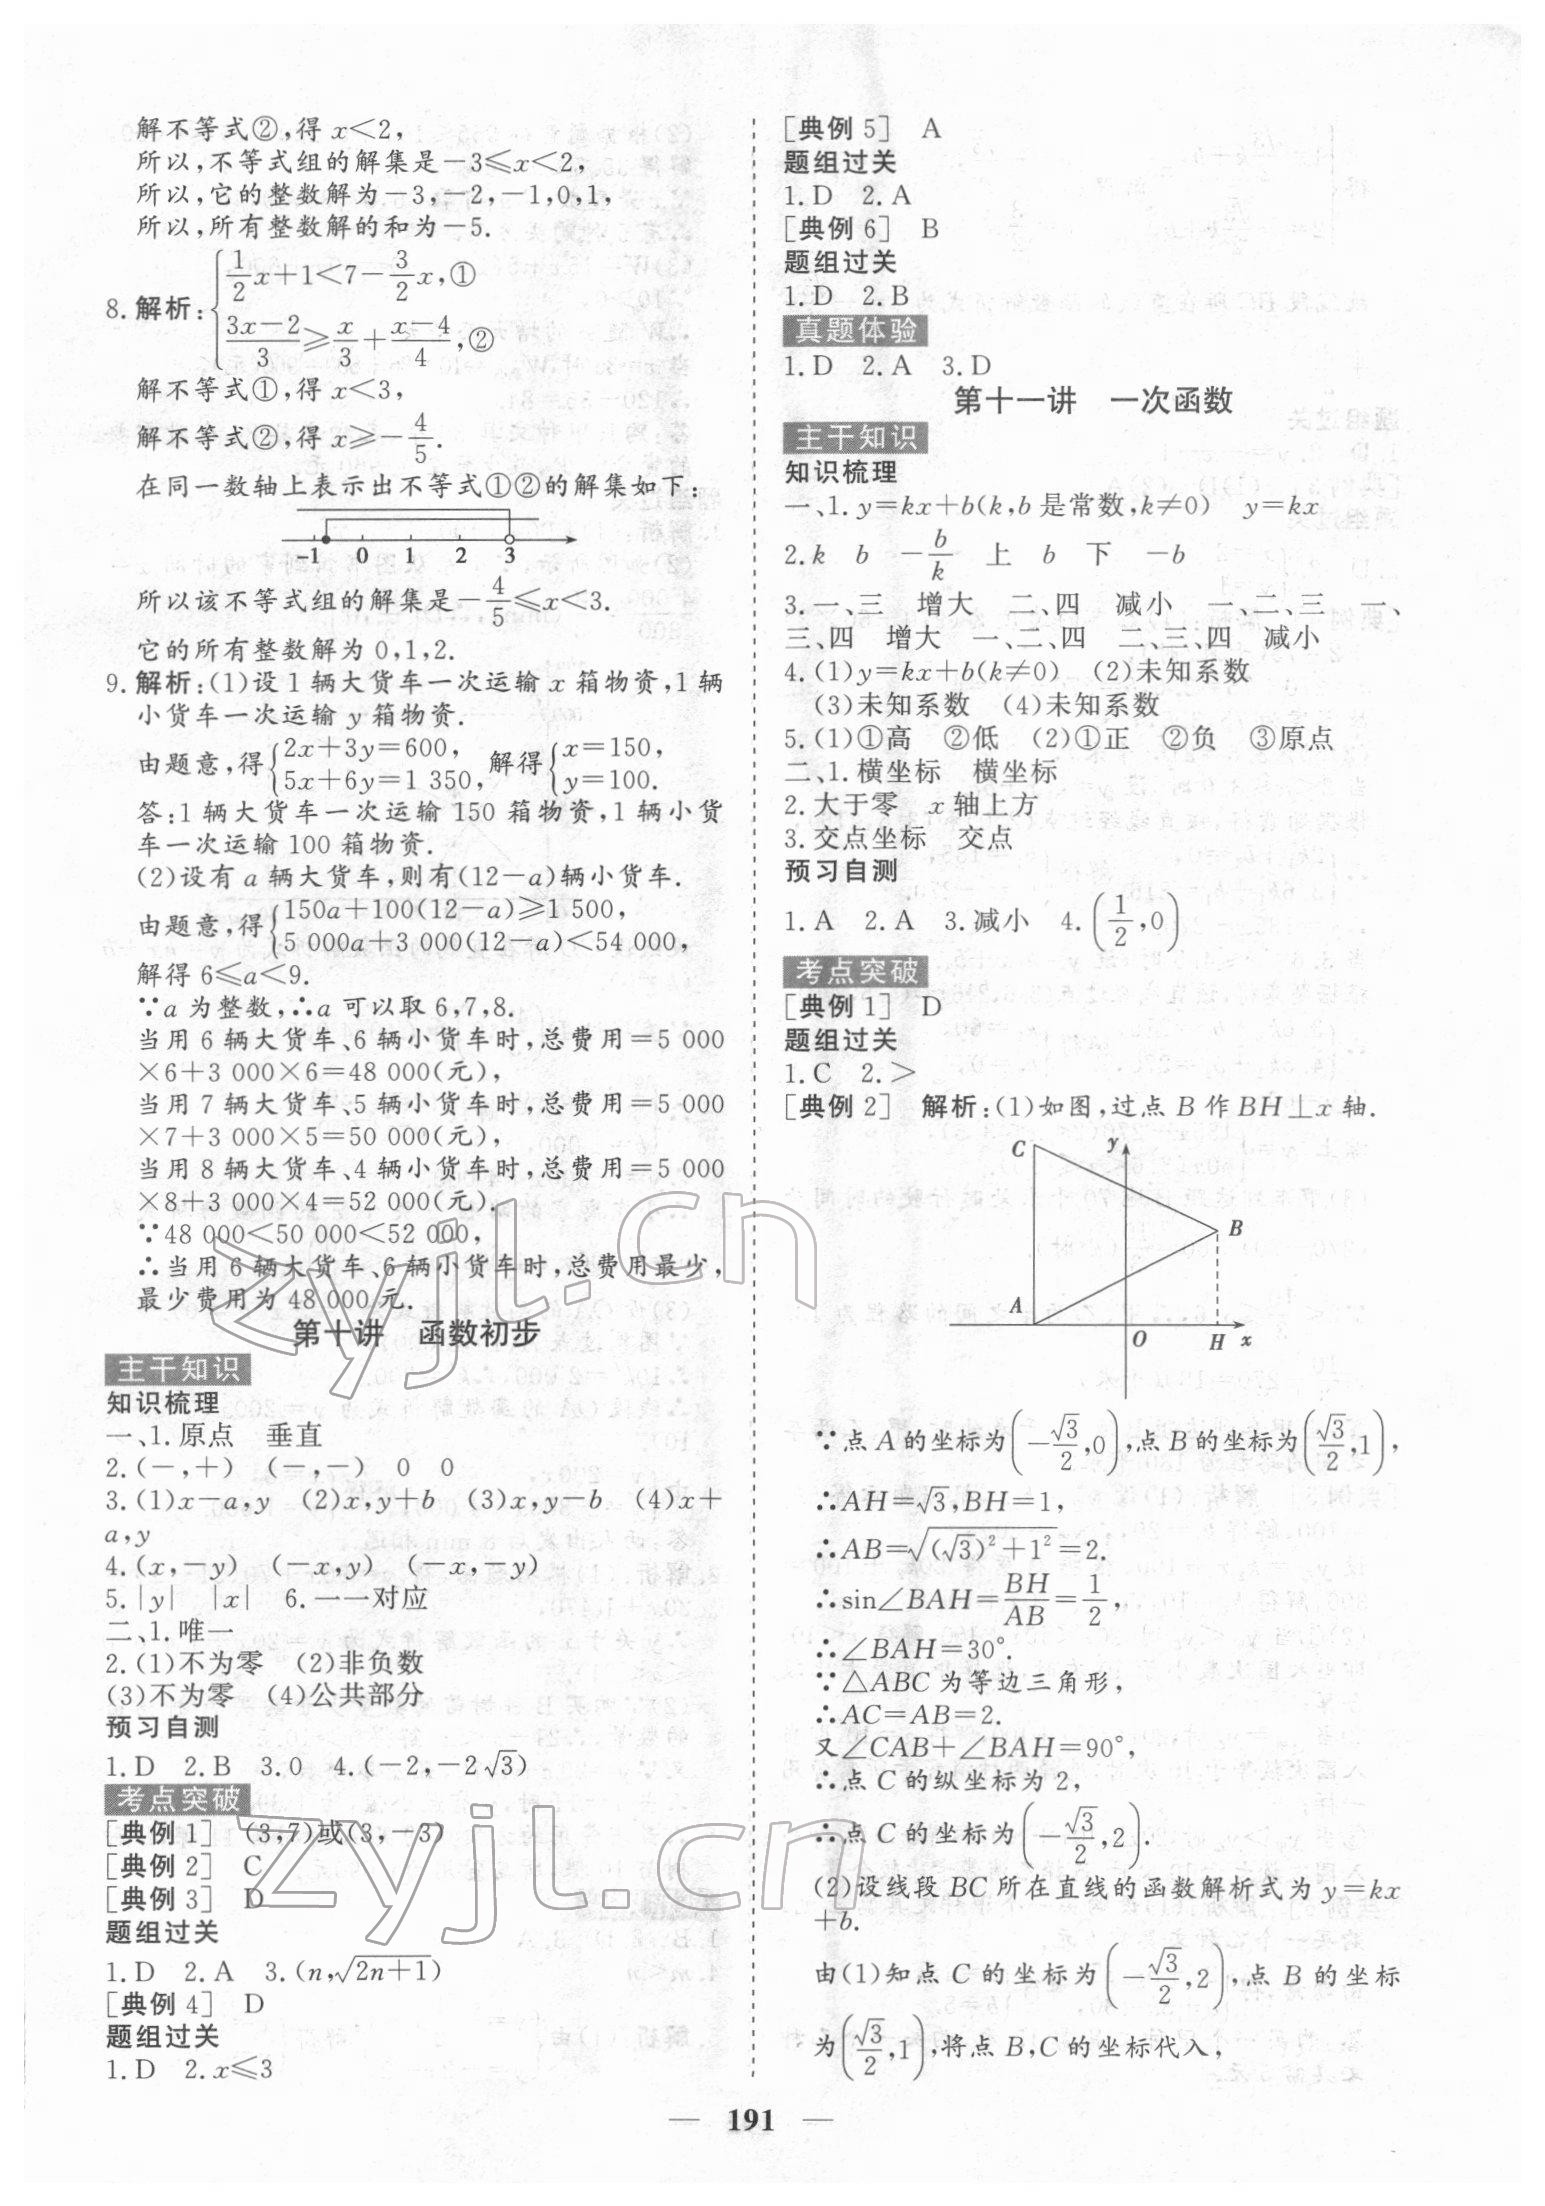 解不等式②,得 x<2,
所以,不等式组的解集是-3≤x<2,
所以,它的整数解为-3,-2,-1,0,1,
所以,所有整数解的和为-5.
8. 解析: { 1/2 x+1<7- 3/2 x,①
(3x-2)/3 ≥ x/3 + (x-4)/4 ,②
解不等式①,得 x<3,
解不等式②,得 x≥- 4/5 .
在同一数轴上表示出不等式①②的解集如下:
-1 0 1 2 3
所以该不等式组的解集是- 4/5 ≤x<3.
它的所有整数解为 0,1,2.
9. 解析:(1)设 1 辆大货车一次运输 x 箱物资,1 辆
小货车一次运输 y 箱物资.
由题意,得 { 2x+3y=600, 5x+6y=1 350, 解得 { x=150, y=100.
答:1 辆大货车一次运输 150 箱物资,1 辆小货
车一次运输 100 箱物资.
(2)设有 a 辆大货车,则有(12-a)辆小货车.
由题意,得 { 150a+100(12-a)≥1 500, 5 000a+3 000(12-a)<54 000,
解得 6≤a<9.
∵a 为整数,∴a 可以取 6,7,8.
当用 6 辆大货车、6 辆小货车时,总费用=5 000
×6+3 000×6=48 000(元),
当用 7 辆大货车、5 辆小货车时,总费用=5 000
×7+3 000×5=50 000(元),
当用 8 辆大货车、4 辆小货车时,总费用=5 000
×8+3 000×4=52 000(元).
∵48 000<50 000<52 000,
∴当用 6 辆大货车、6 辆小货车时,总费用最少,
最少费用为 48 000 元.
第十讲 函数初步
主干知识
知识梳理
一、1. 原点 垂直
2. (-,+) (-,-) 0 0
3. (1)x-a,y (2)x,y+b (3)x,y-b (4)x+
a,y
4. (x,-y) (-x,y) (-x,-y)
5. |y| |x| 6. 一一对应
二、1. 唯一
2. (1)不为零 (2)非负数
(3)不为零 (4)公共部分
预习自测
1. D 2. B 3. 0 4. (-2,-2√3)
考点突破
[典例 1] (3,7)或(3,-3)
[典例 2] C
[典例 3] D
题组过关
1. D 2. A 3. (n,√(2n+1))
[典例 4] D
题组过关
1. D 2. x≤3
[典例 5] A
题组过关
1. D 2. A
[典例 6] B
题组过关
1. D 2. B
真题体验
1. D 2. A 3. D
第十一讲 一次函数
主干知识
知识梳理
一、1. y=kx+b(k,b 是常数,k≠0) y=kx
2. k b - b/k 上 b 下 -b
3. 一、三 增大 二、四 减小 一、二、三 一、
三、四 增大 一、二、四 二、三、四 减小
4. (1)y=kx+b(k≠0) (2)未知系数
(3)未知系数 (4)未知系数
5. (1)①高 ②低 (2)①正 ②负 ③原点
二、1. 横坐标 横坐标
2. 大于零 x 轴上方
3. 交点坐标 交点
预习自测
1. A 2. A 3. 减小 4. (1/2,0)
考点突破
[典例 1] D
题组过关
1. C 2. >
[典例 2] 解析:(1)如图,过点 B 作 BH⊥x 轴.
C y
B
A
O H x
∵点 A 的坐标为(-√3/2,0),点 B 的坐标为(√3/2,1),
∴AH=√3,BH=1,
∴AB=√((√3)²+1²)=2.
∴sin∠BAH= BH/AB = 1/2,
∴∠BAH=30°.
∵△ABC 为等边三角形,
∴AC=AB=2.
又∠CAB+∠BAH=90°,
∴点 C 的纵坐标为 2,
∴点 C 的坐标为(-√3/2,2).
(2)设线段 BC 所在直线的函数解析式为 y=kx
+b.
由(1)知点 C 的坐标为(-√3/2,2),点 B 的坐标
为(√3/2,1),将点 B,C 的坐标代入,
— 191 —
zyjl.cn
zyjl.cn